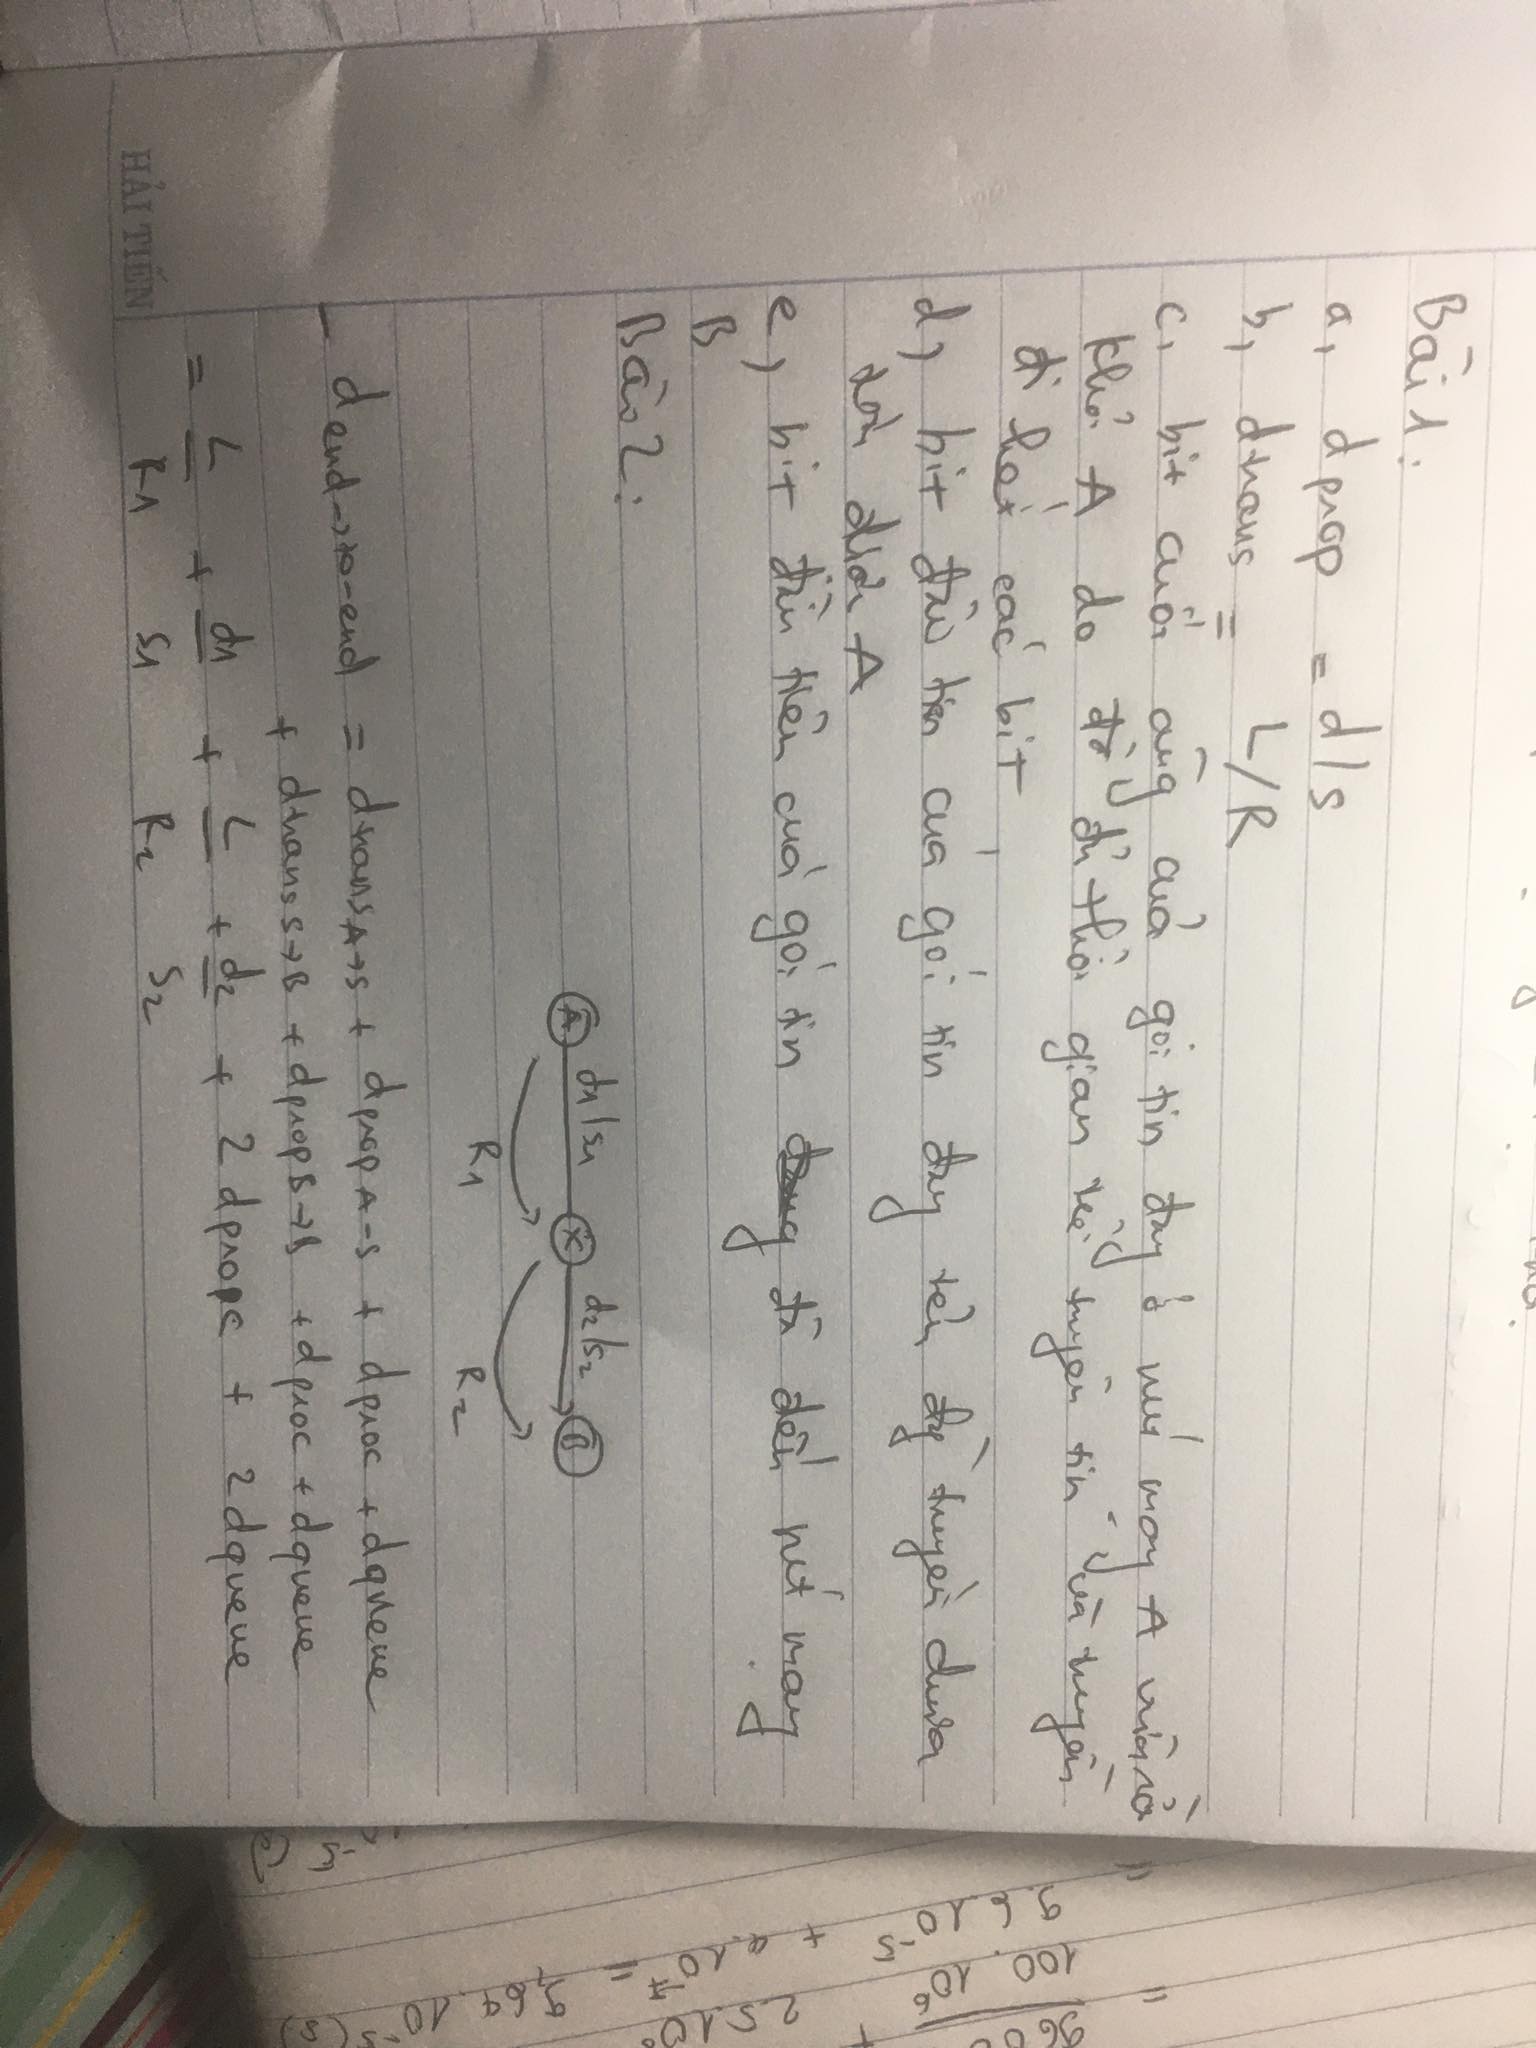 Bài 1:
a, dprop = d/s
b, dtrans = L/R
c, bit cuối cùng của gói tin đang ở nút mạng A vừa rời
khỏi A do đã đủ thời gian để truyền tin và truyền
đi hết các bit,
d, bit đầu tiên của gói tin đang trên đg truyền chưa
đến đích A
e, bit đầu tiên của gói tin đã đến nút mạng
B
Bài 2:
A d1/s1 X d2/s2 B
R1 R2
- dend-to-end = dtransA→S + dpropA-S + dproc + dqueue
+ dtransS→B + dpropS→B + dproc + dqueue
= L/R1 + d1/S1 + L/R2 + d2/S2 + 2 dpropc + 2 dqueue
HẢI TIẾN
100.10⁶ 2,5.10⁸
= 9,6.10⁻⁵ + 4.10⁻⁷ = 9,64.10⁻⁵ (s)